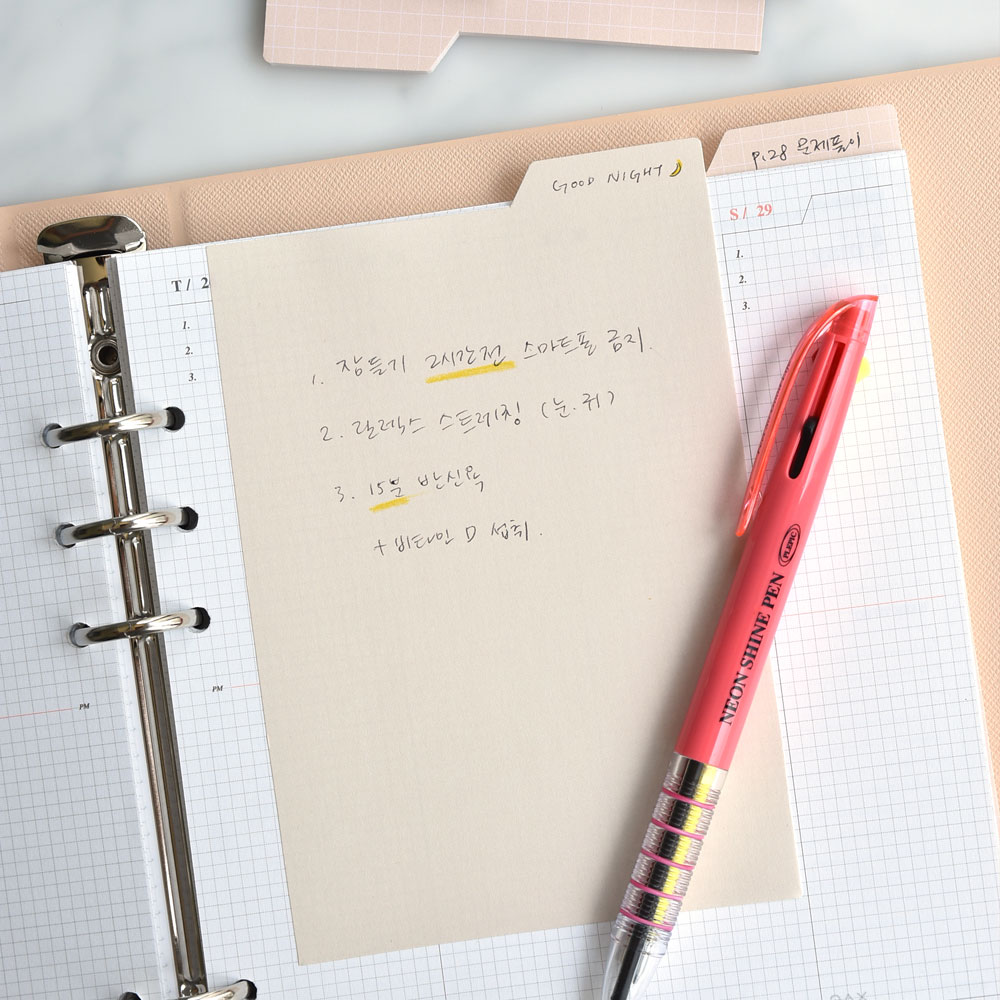 GOOD NIGHT
P.28 문제풀이
S / 29
1.
2.
3.
T / 2
1.
2.
3.
1. 잠들기 2시간전 스마트폰 금지.
2. 릴렉스 스트레칭 (눈.귀)
3. 15분 반신욕
+ 비타민 D 섭취.
PM
PM
PLEPIC
NEON SHINE PEN